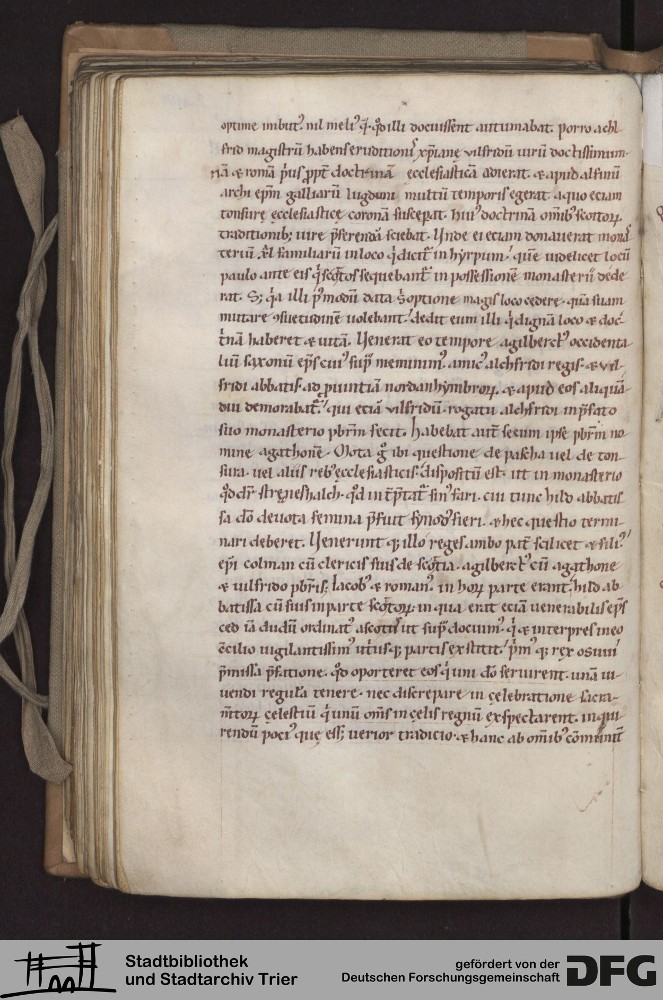 optime imbut᷒. nil meli᷒ q̄. qd̄ illi docuissent autumabat. porro achl
frid magistrū habens eruditionis xp̄iane vilfridū uirū doctissimum.
nā & romā p̱us ꝓpt̄ doctrinā ecclesiasticā adierat. & apud alfinū
archi ep̄m galliarū lugduni multū temporis egerat. a quo eciam
tonsure ęcclesiastice coronā susceperat. hui᷒ doctrinā om̄ib᷒ scottoꝝ
traditionib; iure p̄ferendā sciebat. Unde ei eciam donauerat monas
teriū .xl. familiarū in loco q̇ dicit̄ in hrypum. quē uidelicet locū
paulo ante eis q̇ scottos sequebant̄ in possessionē monasterii dede
rat. S; q̇a illi p᷒modū data s̄ optione magis loco cedere. quā suam
mutare ꝯsuetudinē uolebant. dedit eum illi q̇ dignā loco & doc
t̄nā haberet & uitā. Uenerat eo tempore agilberct᷒ occidenta
liū saxonū ep̄s cui᷒ sup᷒ meminim᷒. amic᷒ alchfridi regis. & vil
fridi abbatis. ad ꝓuintiā nordanhymbroꝝ. & apud eos aliquā
diu demorabat̄. qui eciā vilfridū. rogatu alchfridi in p̄fato
suo monasterio p̄brm fecit. habebat aut̄ secum ipse p̄brm no
mine agathonē. Mota g̊ ibi questione de pascha uel de ton
sura. uel aliis reb᷒ ęcclesiasticis. dispositū est. ut in monasterio
qd̄ dr̄ streneshalch. qd̄ int̄p̄tat̄ sin᷒ fari. cui tunc hild abbatis
sa dō deuota femina p̄fuit synod᷒ fieri. & hec questio termi
nari deberet. Uenerunt q; illo reges ambo pat̄ scilicet & fili᷒
ep̄i colman cū clericis suis de scottia. agilberct᷒ cū agathone
& vilfrido p̄bris; Iacob᷒ & roman᷒ in hoꝝ parte erant. hild ab
batissa cū suis in parte scottoꝝ. in qua erat eciā uenerabilis ep̄s
ced iā dudū ordinat᷒ a scottis ut sup᷒ docuim᷒. q̇ & interpres in eo
ꝯcilio uigilantissim᷒ ut̄iusq; partis exstitit. p᷒m᷒ q; rex osuui
p̄missa p̄fatione. qd̄ oporteret eos q̇ uni dō seruirent. unā ui
uendi regulā tenere. nec discrepare in celebratione sacra
m̄toꝝ celestiū q̇ unū om̄s in celis regnū exspectarent. inqui
rendū poci᷒ quę ess; uerior tradicio. & hanc ab om̄ib᷒ cōmunit̄
Stadtbibliothek
und Stadtarchiv Trier
gefördert von der
Deutschen Forschungsgemeinschaft
DFG